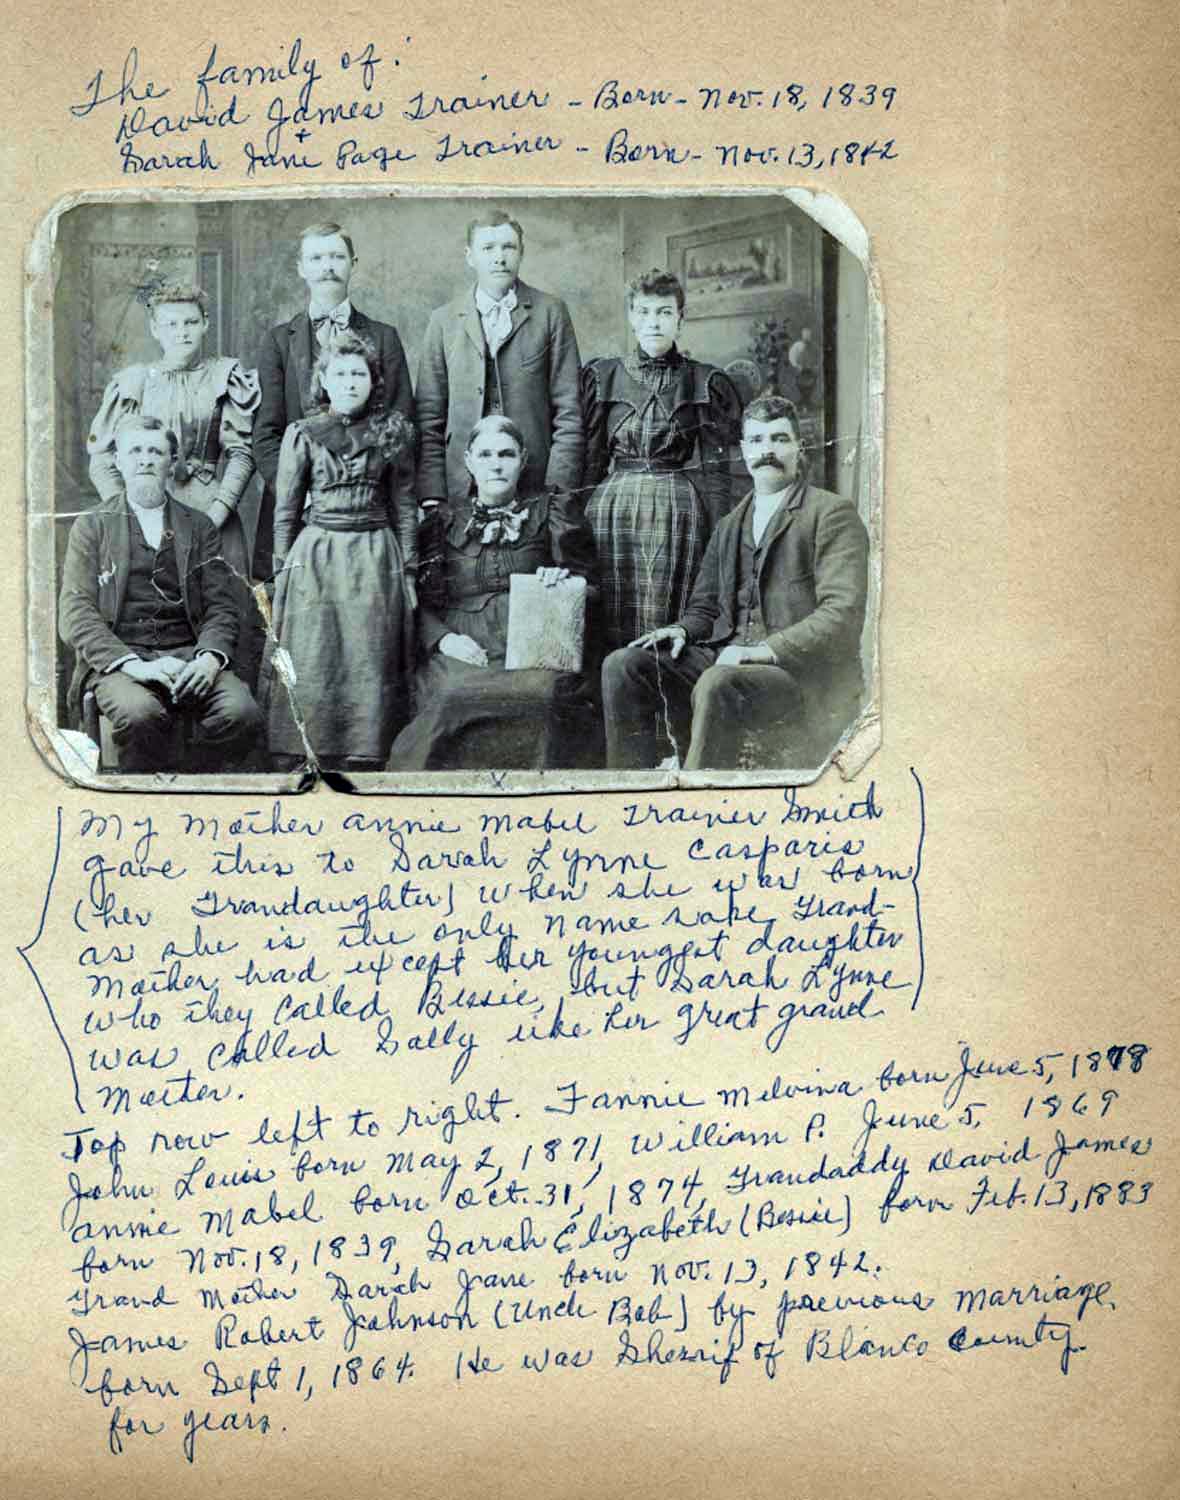 The family of:
David James Trainer - Born - Nov. 18, 1839
+
Sarah Jane Page Trainer - Born - Nov. 13, 1842
My Mother Annie Mabel Trainer Smith
gave this to Sarah Lynne Casparis
(her Grandaughter) when she was born
as she is the only name sake Grand-
Mother had except her youngest daughter
who they called Bessie, but Sarah Lynne
was called Sally like her great grand
Mother.
Top row left to right. Fannie Melvina born June 5, 1878
John Louis born May 2, 1871, William P. June 5, 1869
Annie Mabel born Oct. 31, 1874, Grandaddy David James
born Nov. 18, 1839, Sarah Elizabeth (Bessie) born Feb. 13, 1883
Grand Mother Sarah Jane born Nov. 13, 1842.
James Robert Johnson (Uncle Bob) by previous marriage,
born Sept 1, 1864. He was Sherrif of Blanco County
for years.